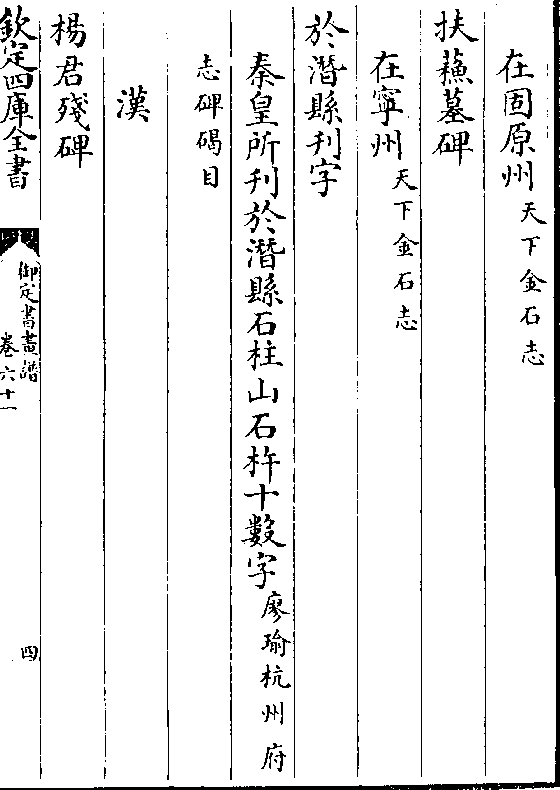 在固原州天下金石志
扶蘓墓碑
在寧州天下金石志
於潛縣刋字
秦皇所刋於潛縣石柱山石杵十數字廖瑜杭州府
志碑碣目
漢
楊君殘碑
欽定四庫全書
御定書畫譜
卷六十一
四